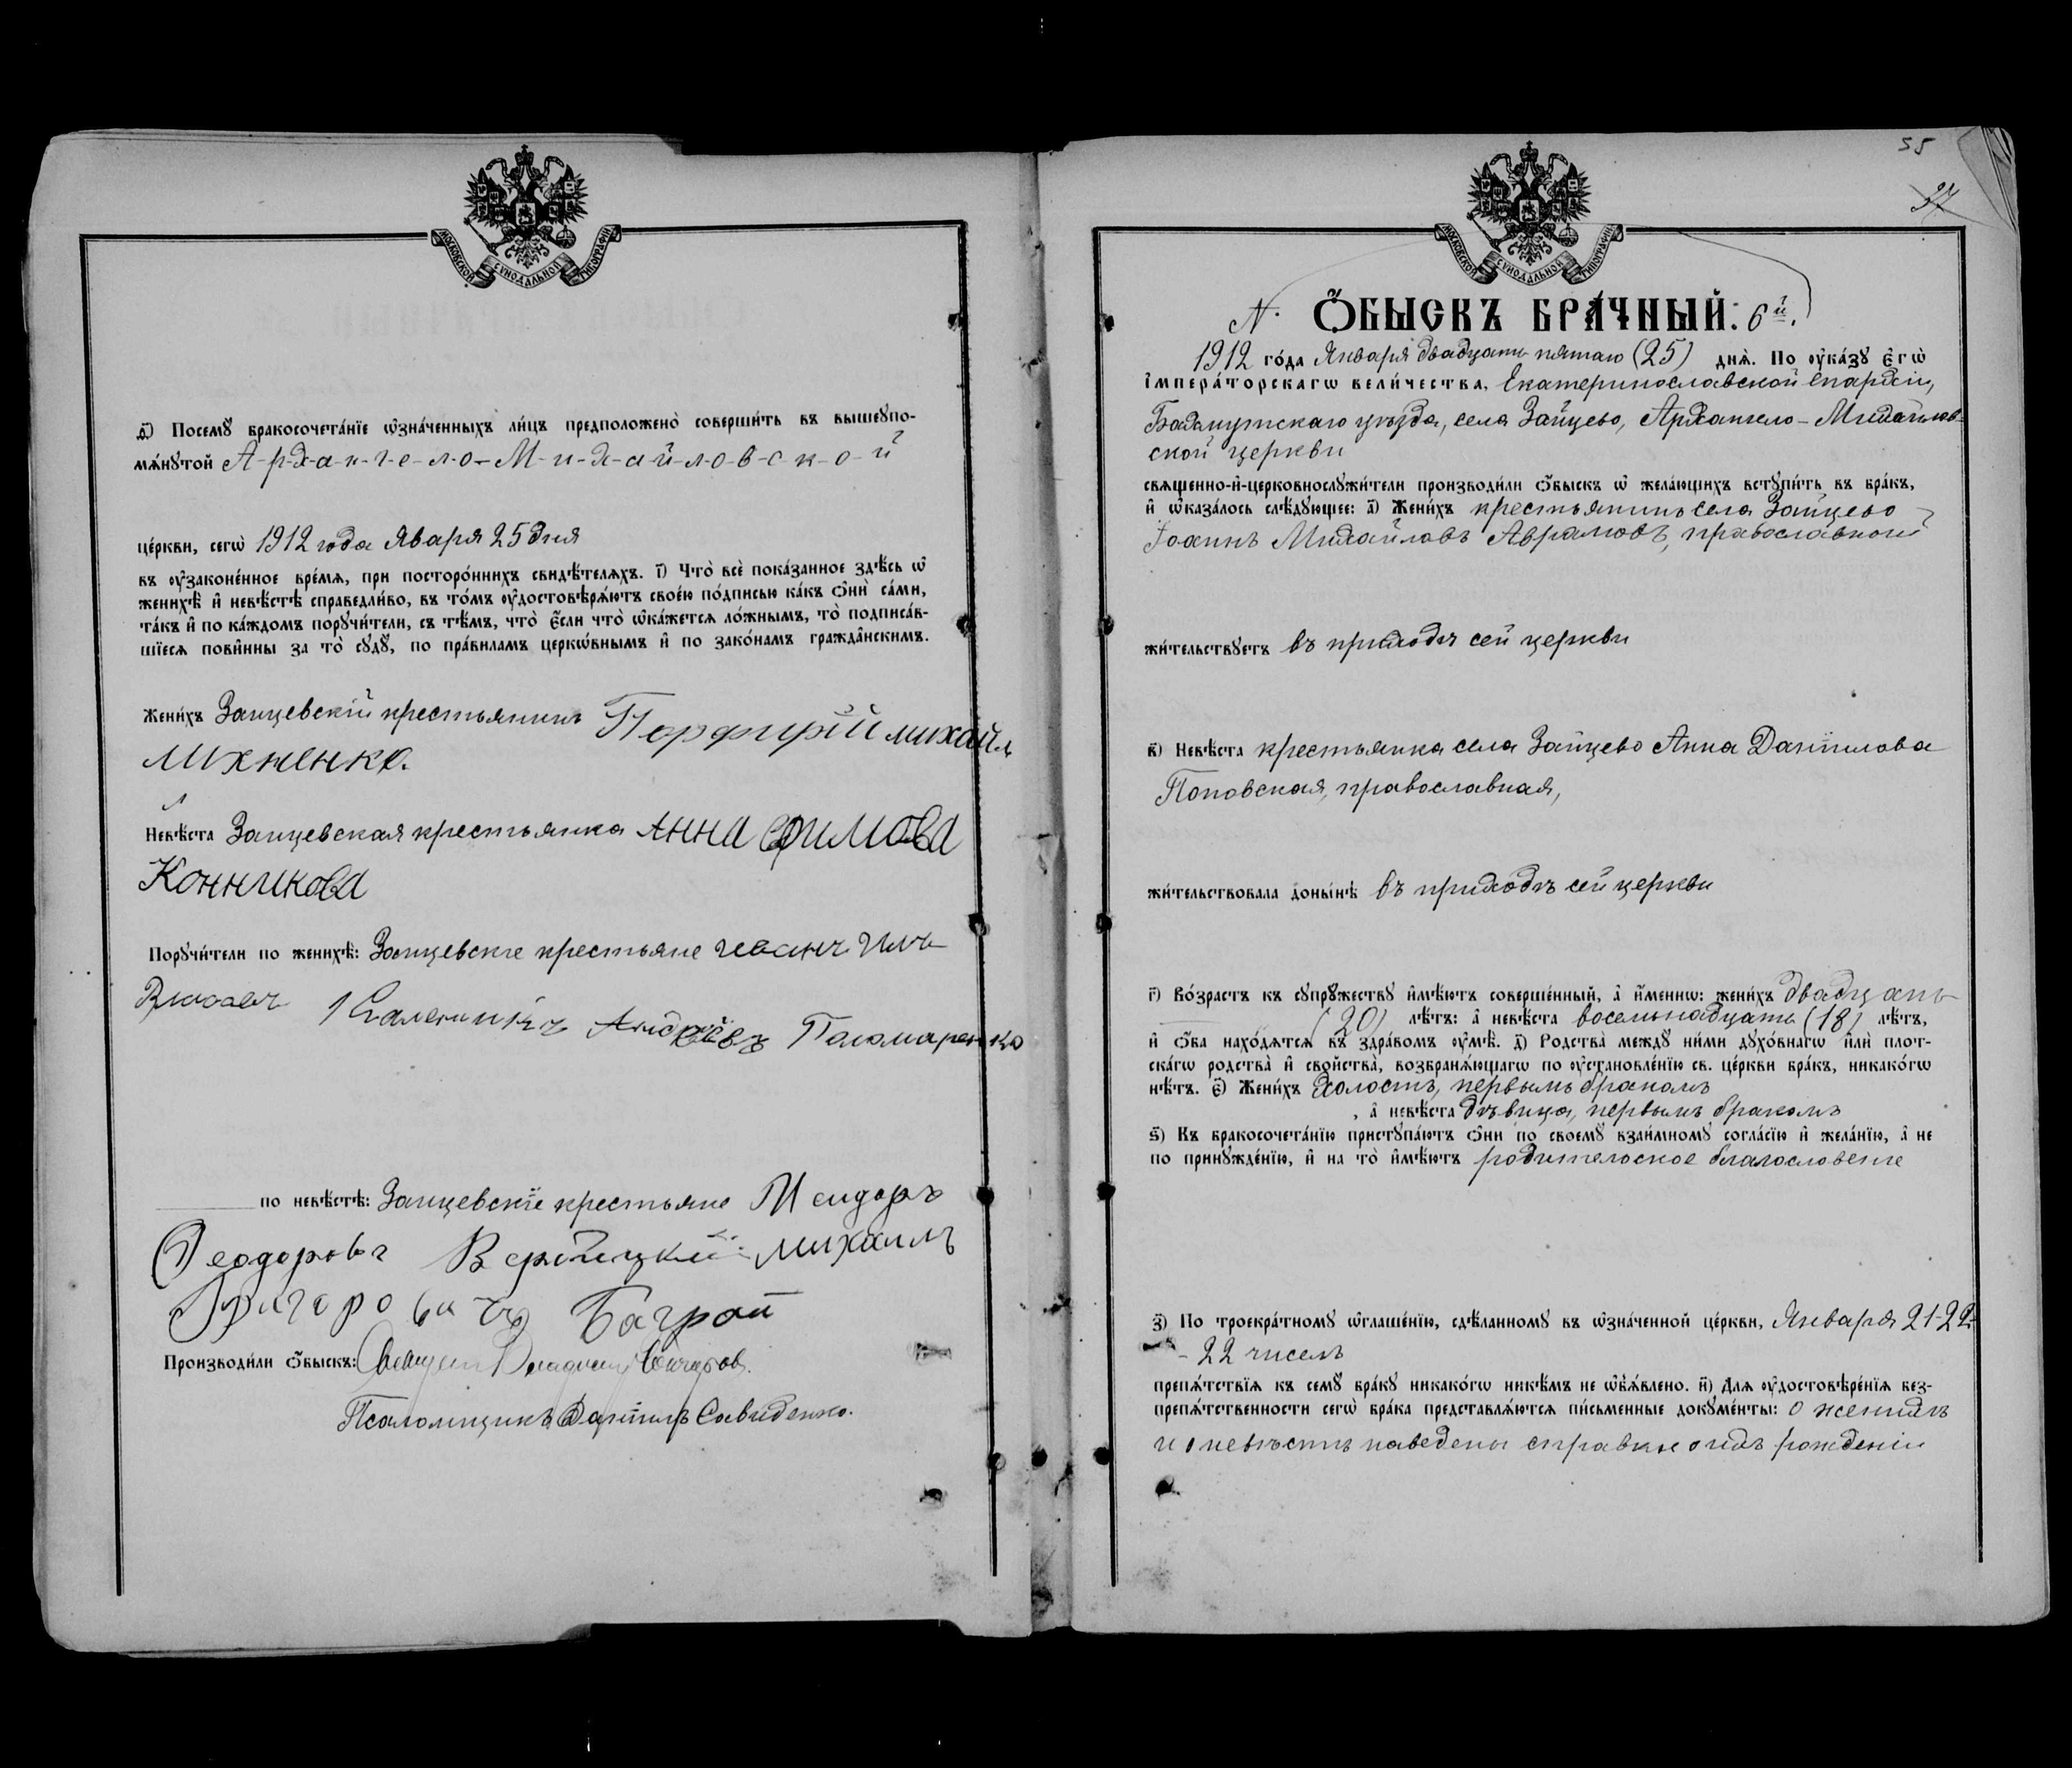 МОСКОВСКОЙ СѴНОДАЛЬНОЙ ТИПОГРАФІИ
д҃) Посемꙋ бракосочета́нїе ѡ҆зна́ченныхъ ли́цъ предположено̀ соверши́ть въ вышеꙋпо-
мѧ́нꙋтой А-р-х-а-н-г-е-л-о-М-и-х-а-й-л-о-в-с-к-о-й
це́ркви, сегѡ̀ 1912 года Яваря 25 дня
въ ᲂу҆законе́нное вре́мѧ, при посторо́ннихъ свидѣ́телѧхъ. і҃) Что̀ всѐ пока́занное здѣ́сь ѡ҆
женихѣ̀ и҆ невѣ́стѣ справедли́во, въ то́мъ ᲂу҆достовѣрѧ́ютъ свое́ю по́дписью ка́къ ѻ҆нѝ са́ми,
та́къ и҆ по ка́ждомъ порꙋчи́тели, съ тѣ́мъ, что̀ є҆́сли что̀ ѡ҆ка́жетсѧ ло́жнымъ, то̀ подписа́в-
шїесѧ пови́нны за то̀ сꙋдꙋ̀, по пра́виламъ церкѡ́внымъ и҆ по зако́намъ гражда́нскимъ.
Жени́хъ Зайцевскій крестьянинъ Порфирій михайл
михненко.
Невѣ́ста Зайцевская крестьянка Анна Ефимова
Конникова
Порꙋчи́тели по женихѣ̀: Зайцевскіе крестьяне иванъ
Каленикъ Андреевъ Пономаренко
по невѣ́стѣ: Зайцевскіе крестьяне Исидоръ
Феодоровъ Вербицкій: михаилъ
Григоровичъ Баграй
Производи́ли ѻ҆́быскъ: Священ Владимир
Псаломщикъ Даніилъ Савиденко.
55
27
МОСКОВСКОЙ СѴНОДАЛЬНОЙ ТИПОГРАФІИ
N. Ѻ҆́БЫСКЪ БРА́ЧНЫЙ: 6й.
1912 го́да Января двадцать пятаго (25) днѧ̀. По ᲂу҆ка́зꙋ є҆гѡ̀
і҆мпера́торскагѡ вели́чества, Екатеринославской епархіи,
Бахмутскаго уѣзда, села Зайцево, Архангело-Михайлов-
ской церкви
свѧще́нно-и҆-церковнослꙋжи́тели производи́ли ѻ҆́быскъ ѡ҆ жела́ющихъ встꙋпи́ть въ бра́къ,
и҆ ѡ҆каза́лось слѣ́дꙋющее: а҃) Жени́хъ крестьянинъ села Зайцево
Іоаннъ Михайловъ Авраамовъ, православной
жи́тельствꙋетъ въ приходѣ сей церкви
в҃) Невѣ́ста крестьянка села Зайцево Анна Даніилова
Поповская, православная,
жи́тельствовала доны́нѣ въ приходѣ сей церкви
г҃) Во́зрастъ къ сꙋпрꙋ́жествꙋ и҆мѣ́ютъ соверше́нный, а҆ и҆́меннѡ: жени́хъ двадцать
(20) лѣ́тъ: а҆ невѣ́ста восемьнадцать (18) лѣ́тъ,
и҆ ѻ҆́ба нахо́дѧтсѧ въ здра́вомъ ᲂу҆мѣ̀. д҃) Родства̀ междꙋ̀ ни́ми дꙋхо́внагѡ и҆лѝ плот-
ска́гѡ родства̀ и҆ сво́йства̀, возбранѧ́ющагѡ по ᲂу҆становле́нїю св. це́ркви бра́къ, никако́гѡ
нѣ́тъ. є҃) Жени́хъ холостъ, первымъ бракомъ
, а҆ невѣ́ста дѣвица, первымъ бракомъ
ѕ҃) Къ бракосочета́нїю пристꙋпа́ютъ ѻ҆нѝ по своемꙋ̀ взаи́мномꙋ согла́сїю и҆ жела́нїю, а҆ не
по принꙋжде́нїю, и҆ на то̀ и҆мѣ́ютъ родительское благословеніе
з҃) По троекра́тномꙋ ѡ҆глаше́нїю, сдѣ́ланномꙋ въ ѡ҆зна́ченной це́ркви, Января 21-22-
- 22 чиселъ
препѧ́тствїѧ къ семꙋ̀ бра́кꙋ никако́гѡ никѣ́мъ не ѡ҆б̾ѧ́влено. и҃) Длѧ ᲂу҆достовѣре́нїѧ без-
препѧ́тственности сегѡ̀ бра́ка представлѧ́ютсѧ пи́сьменные докꙋме́нты: о женихѣ
и о невѣстѣ наведены справки о ихъ рожденіи